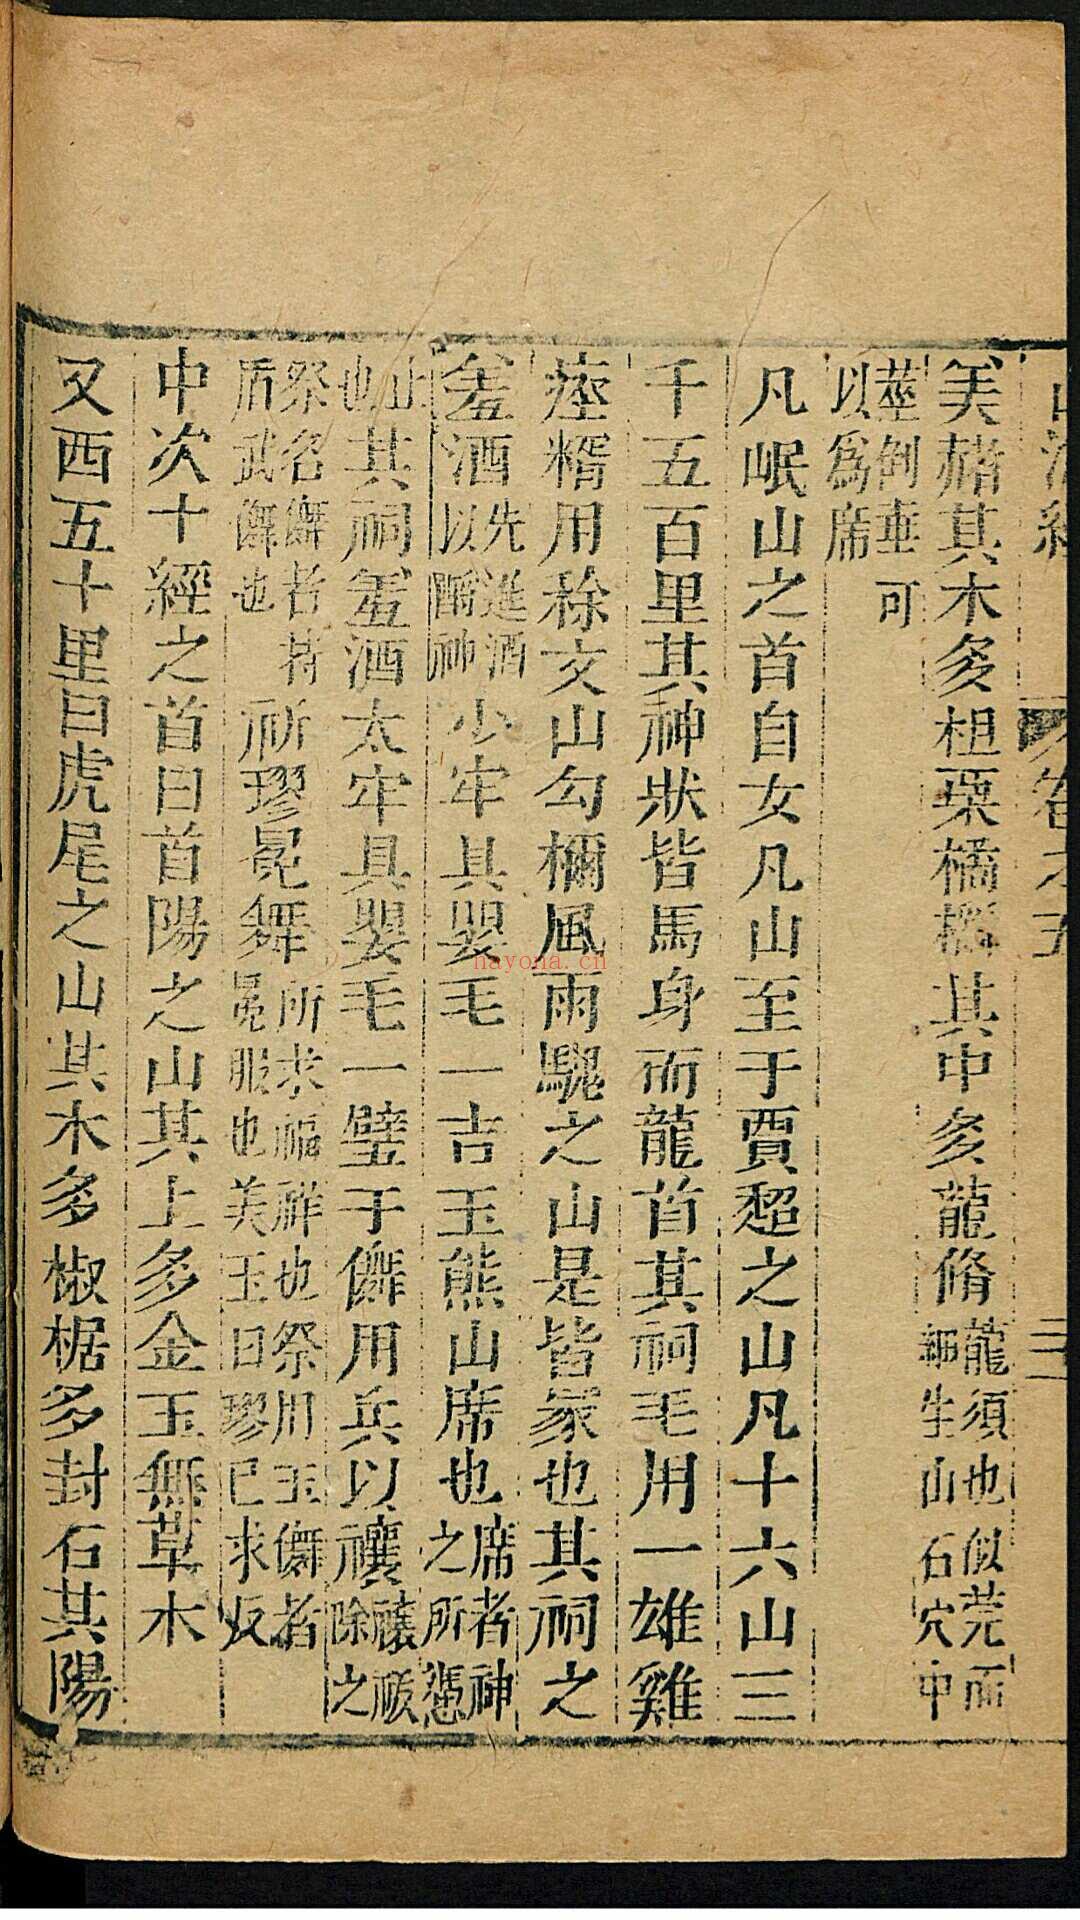 山海經 卷之五 三
美赭其木多柤栗橘櫾其中多龍脩龍須也似莞而細生山石穴中
莖倒垂可以為席
凡岷山之首自女凡山至于賈超之山凡十六山三
千五百里其神狀皆馬身而龍首其祠毛用一雄雞
瘞糈用稌文山勾檷風雨騩之山是皆冢也其祠之
羞酒先進酒以酹神少牢具嬰毛一吉玉熊山席也席者神之所憑
止也其祠羞酒太牢具嬰毛一璧干儛用兵以禳禳祓除之
祭名儛者持盾武儛也祈璆冕舞所求福祥也祭用玉儛者冕服也美玉曰璆巳求反
中次十經之首曰首陽之山其上多金玉無草木
又西五十里曰虎尾之山其木多椒椐多封石其陽
hayona.cn